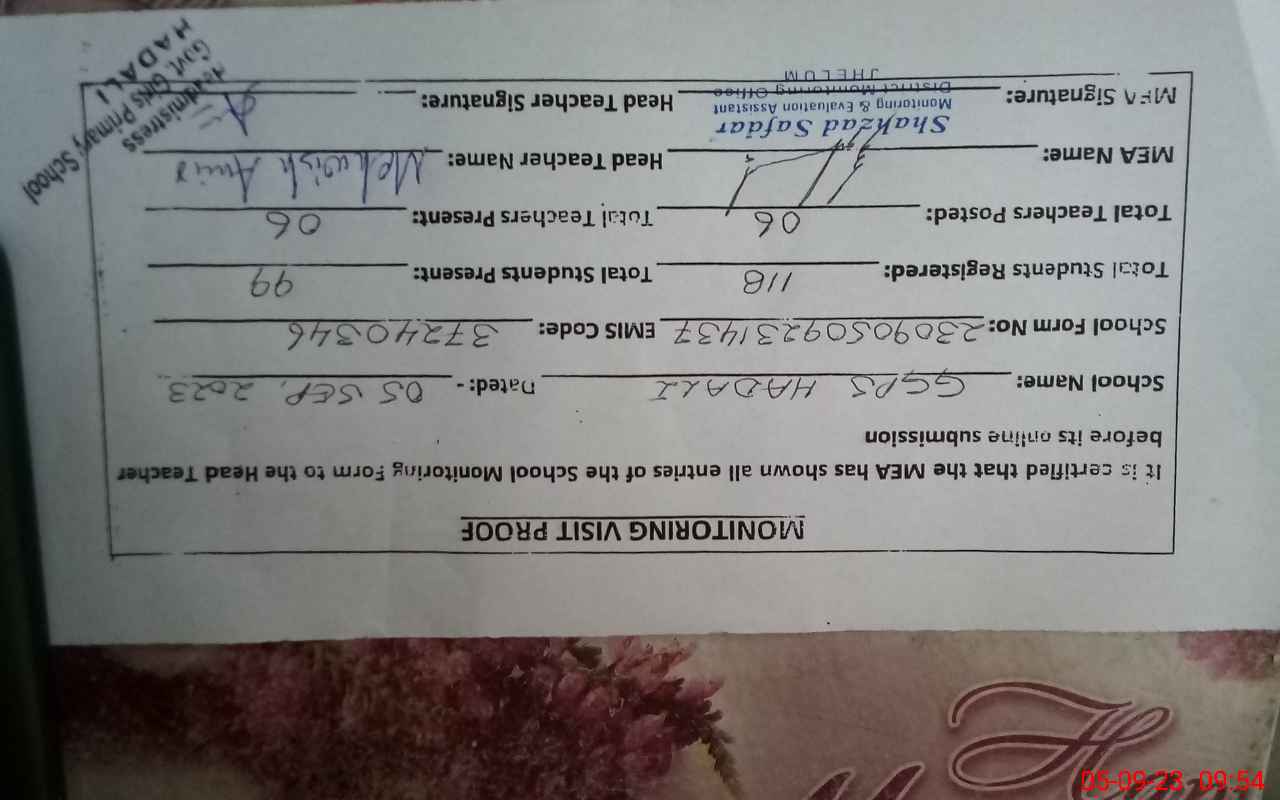 MONITORING VISIT PROOF
It is certified that the MEA has shown all entries of the School Monitoring Form to the Head Teacher
before its online submission
School Name: GGPS HADALI Dated: - 05 SEP, 2023
School Form No: 23090509231437 EMIS Code: 37240346
Total Students Registered: 118 Total Students Present: 99
Total Teachers Posted: 06 Total Teachers Present: 06
MEA Name: Head Teacher Name: Mehwish Anis
Shahzad Safdar
Monitoring & Evaluation Assistant
District Monitoring Office
JHELUM
MEA Signature: Head Teacher Signature:
Headmistress
Govt. Girls Primary School
HADALI
05-09-23 09:54